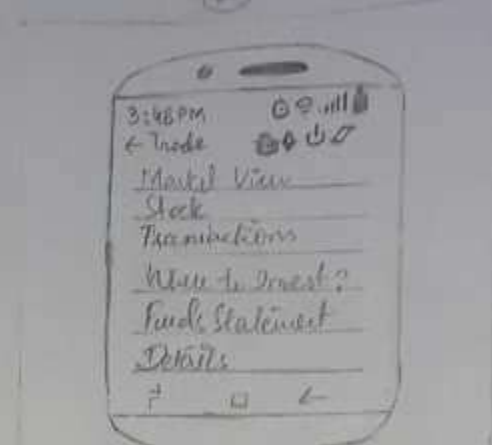 3:48 PM
← Trade
Market View
Stock
Transactions
Where to Invest?
Funds Statement
Details